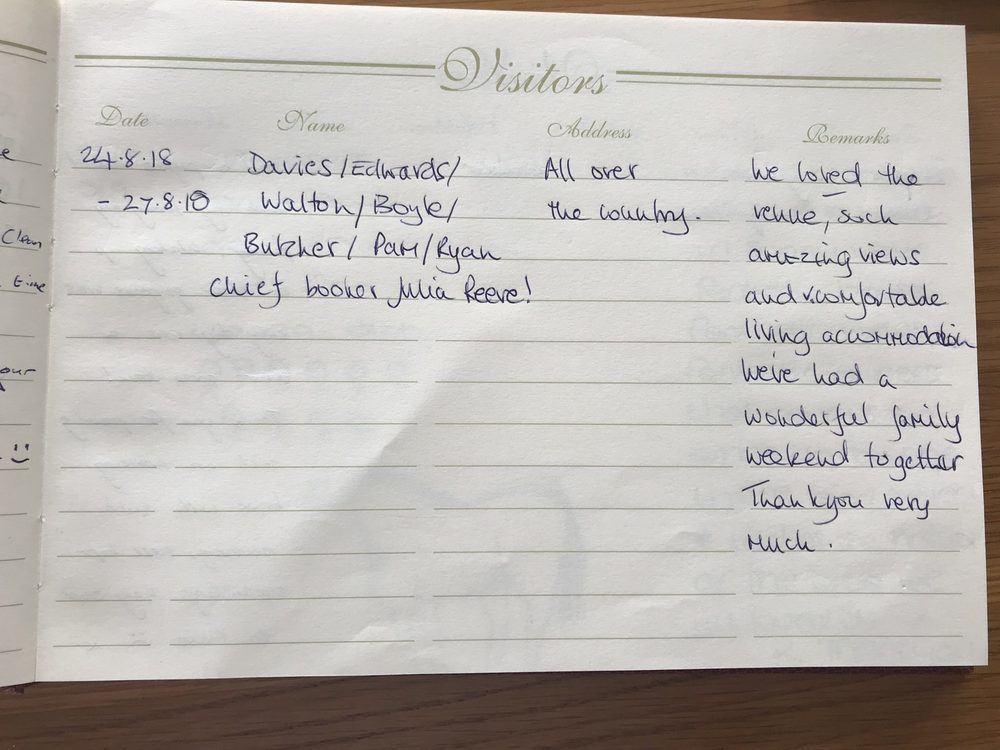 Visitors
Date Name Address Remarks
24.8.18 Davies/Edwards/ All over We loved the
- 27.8.18 Walton/Boyle/ the country. venue, such
Butcher/ Pam/Ryan amazing views
Chief booker Julia Reeve! and v.comfortable
living accommodation
We've had a
wonderful family
weekend together
Thankyou very
much.
Clean
time
our